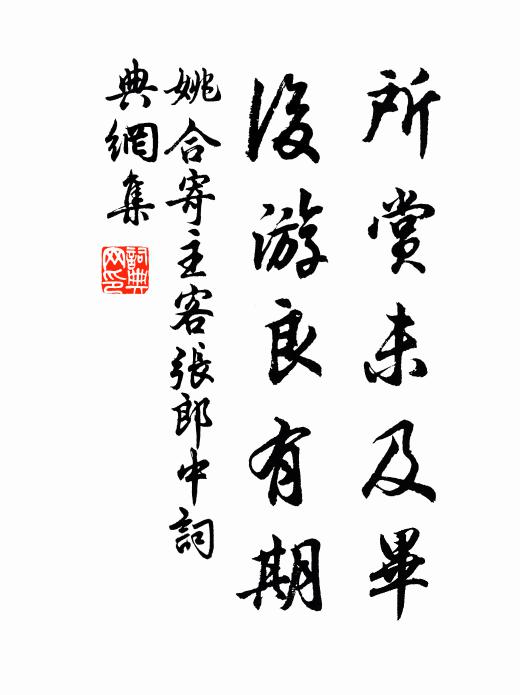 所賞未及畢
後游良有期
姚合寄主客張郎中詞
典網集
詞典
网印